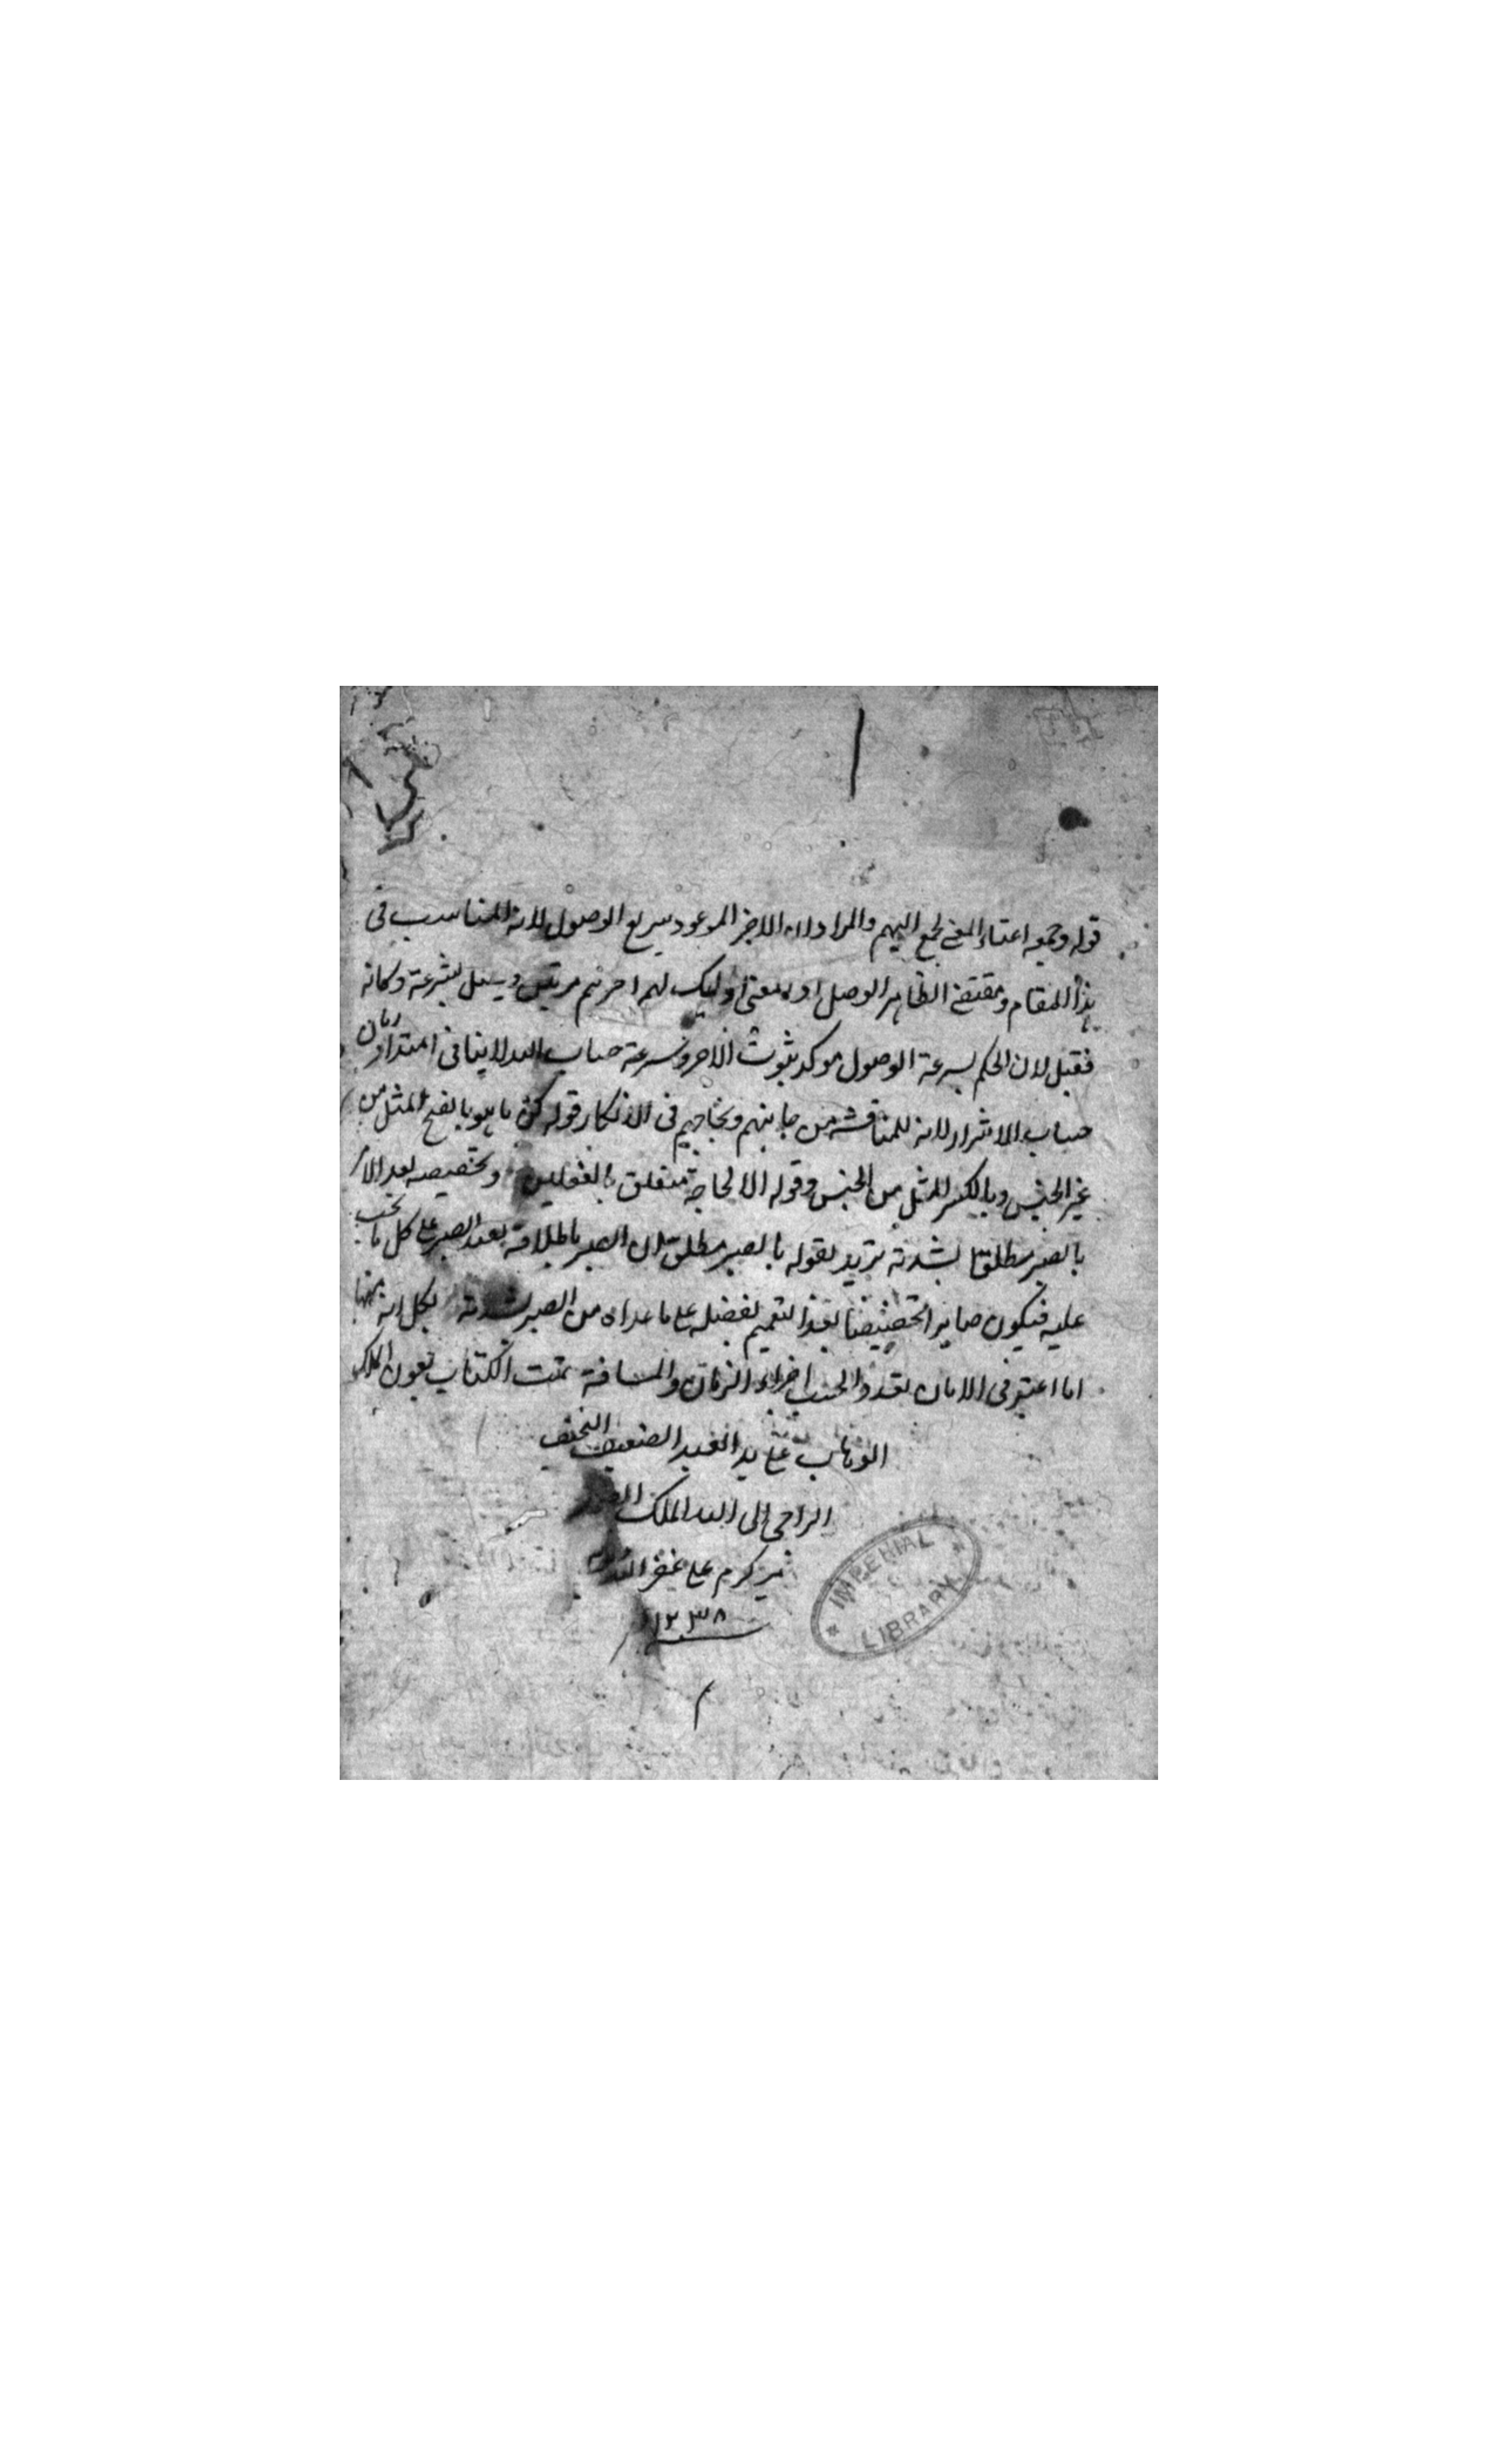 قوله وجمعه اعتبار المعنى لجمع اليهم والمراد ان الاجر الموعود سريع الوصول لانه المناسب فى
هذا المقام ومقتضى الظاهر الوصل اولمعنى اوليك لهم اجرهم مرتين بشرعة وكانه
فقيل لان الحكم بسرعة الوصول موكد بثبوت الاجر وسرعة حساب الله لاينافى امتداد زمان
حساب الاشرار لانه للمناقشة من جانبهم فى الانكار قوله ما هو بالفتح المثل من
غير الجنس وبالكسر المثل من الجنس وقوله الالحاجة متعلق بالفعلين وتخصيصه بعد الامر
بالصبر مطلقا لشدته يريد بقوله بالصبر مطلق لان الصبر باطلاقه الصبر على كل ما يجب
عليه فيكون صابرا تخصيصا بعد التعميم لفضله على ما عداه من الصبر لشدته
اما اعتبر فى الامان اجزاء الزمان والمسافة تمت الكتاب بعون الملك
الوهاب على يد العبد الضعيف النحيف
الراجى الى الله الملك
كرم على غفر الله
١٢٣٨
IMPERIAL
LIBRARY